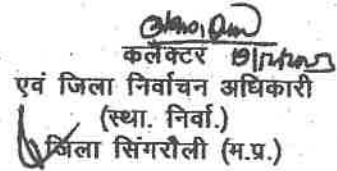 कलेक्टर
एवं जिला निर्वाचन अधिकारी
(स्था. निर्वा.)
जिला सिंगरौली (म.प्र.)